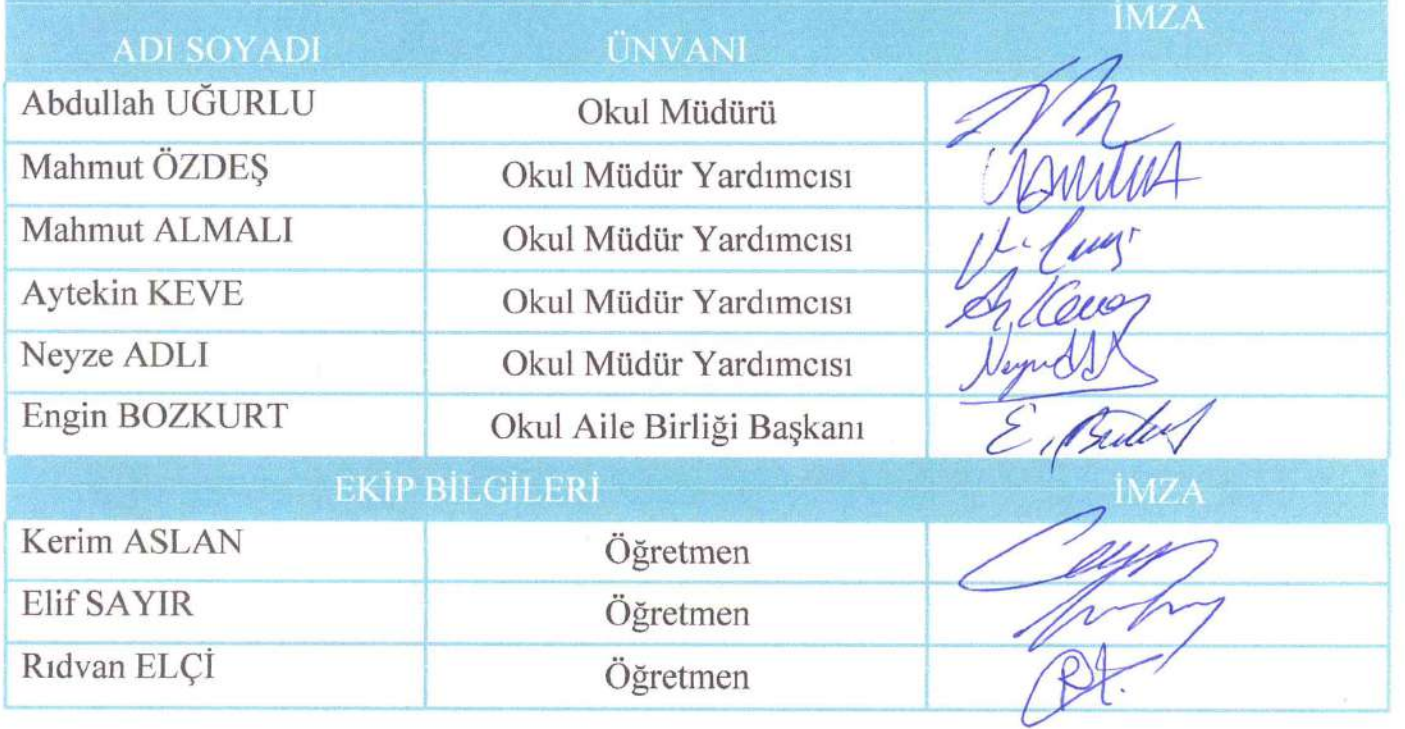 ADI SOYADI ÜNVANI İMZA
Abdullah UĞURLU Okul Müdürü
Mahmut ÖZDEŞ Okul Müdür Yardımcısı
Mahmut ALMALI Okul Müdür Yardımcısı
Aytekin KEVE Okul Müdür Yardımcısı
Neyze ADLI Okul Müdür Yardımcısı
Engin BOZKURT Okul Aile Birliği Başkanı
EKİP BİLGİLERİ İMZA
Kerim ASLAN Öğretmen
Elif SAYIR Öğretmen
Rıdvan ELÇİ Öğretmen